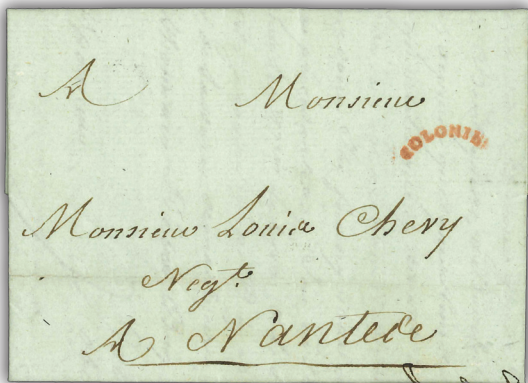 A Monsieur
COLONIE
Monsieur Louis Chevy
Negt.
A Nantes